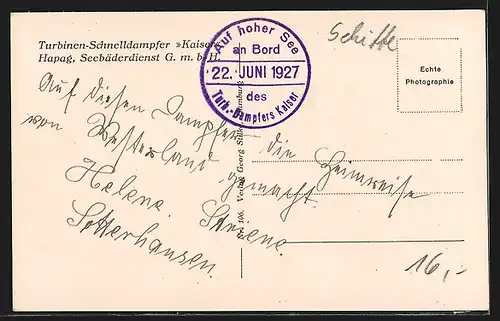 Turbinen-Schnelldampfer »Kaiser
Hapag, Seebäderdienst G. m. b. H.
Auf hoher See
an Bord
22. JUNI 1927
des
Turb.-Dampfers Kaiser
Schiffe
Echte
Photographie
Auf diesen Dampfer die Heimreise
von Westerland gemacht.
Helene
16,-
Verlag Georg